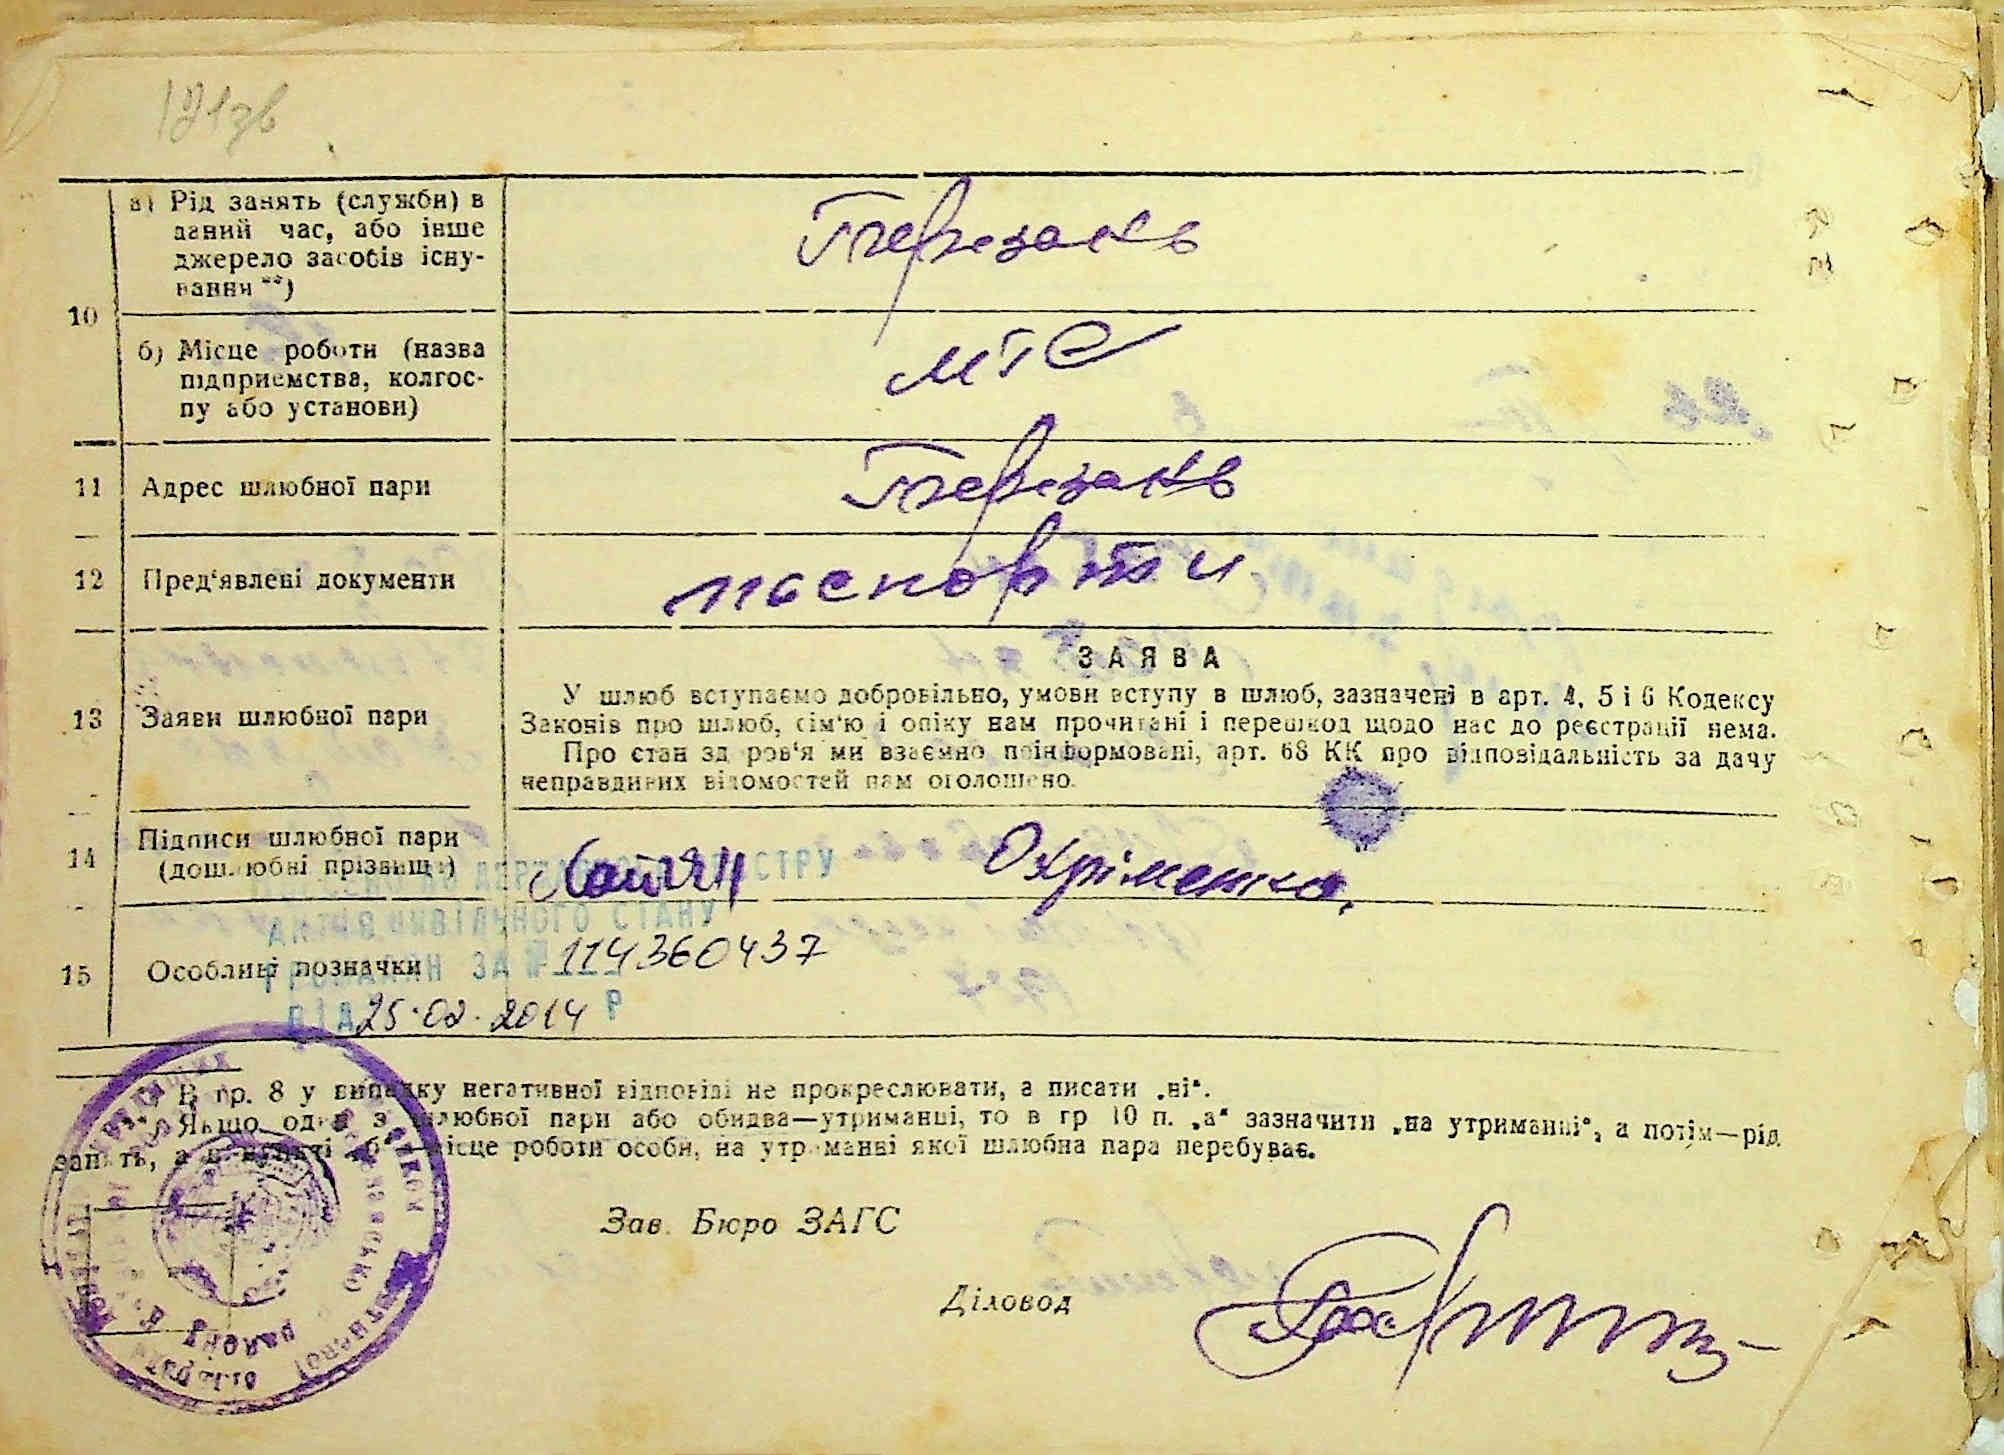 10
а) Рід занять (служби) в
даний час, або інше
джерело засобів існу-
вання **)
Березань
б) Місце роботи (назва
підприємства, колгос-
пу або установи)
МТС
11 Адрес шлюбної пари
Березань
12 Пред'явлені документи
паспорти
13 Заяви шлюбної пари
ЗАЯВА
У шлюб вступаємо добровільно, умови вступу в шлюб, зазначені в арт. 4, 5 і 6 Кодексу
Законів про шлюб, сім'ю і опіку нам прочитані і перешкод щодо нас до реєстрації нема.
Про стан здоров'я ми взаємно поінформовані, арт. 68 КК про відповідальність за дачу
неправдивих відомостей нам оголошено.
14 Підписи шлюбної пари
(дошлюбні прізвища)
Охріменко.
ДЕРЖАВНОГО РЕЄСТРУ
АКТІВ ЦИВІЛЬНОГО СТАНУ
ГРОМАДЯН ЗА № 114360437
15 Особливі позначки
ВІД 25.02.2014 Р
*) В гр. 8 у випадку негативної відповіді не прокреслювати, а писати „ні“.
**) Якщо один з шлюбної пари або обидва—утриманці, то в гр 10 п. „а“ зазначити „на утриманні“, а потім—рід
занять, а в пункті „б“ місце роботи особи, на утриманні якої шлюбна пара перебуває.
Зав. Бюро ЗАГС
Діловод